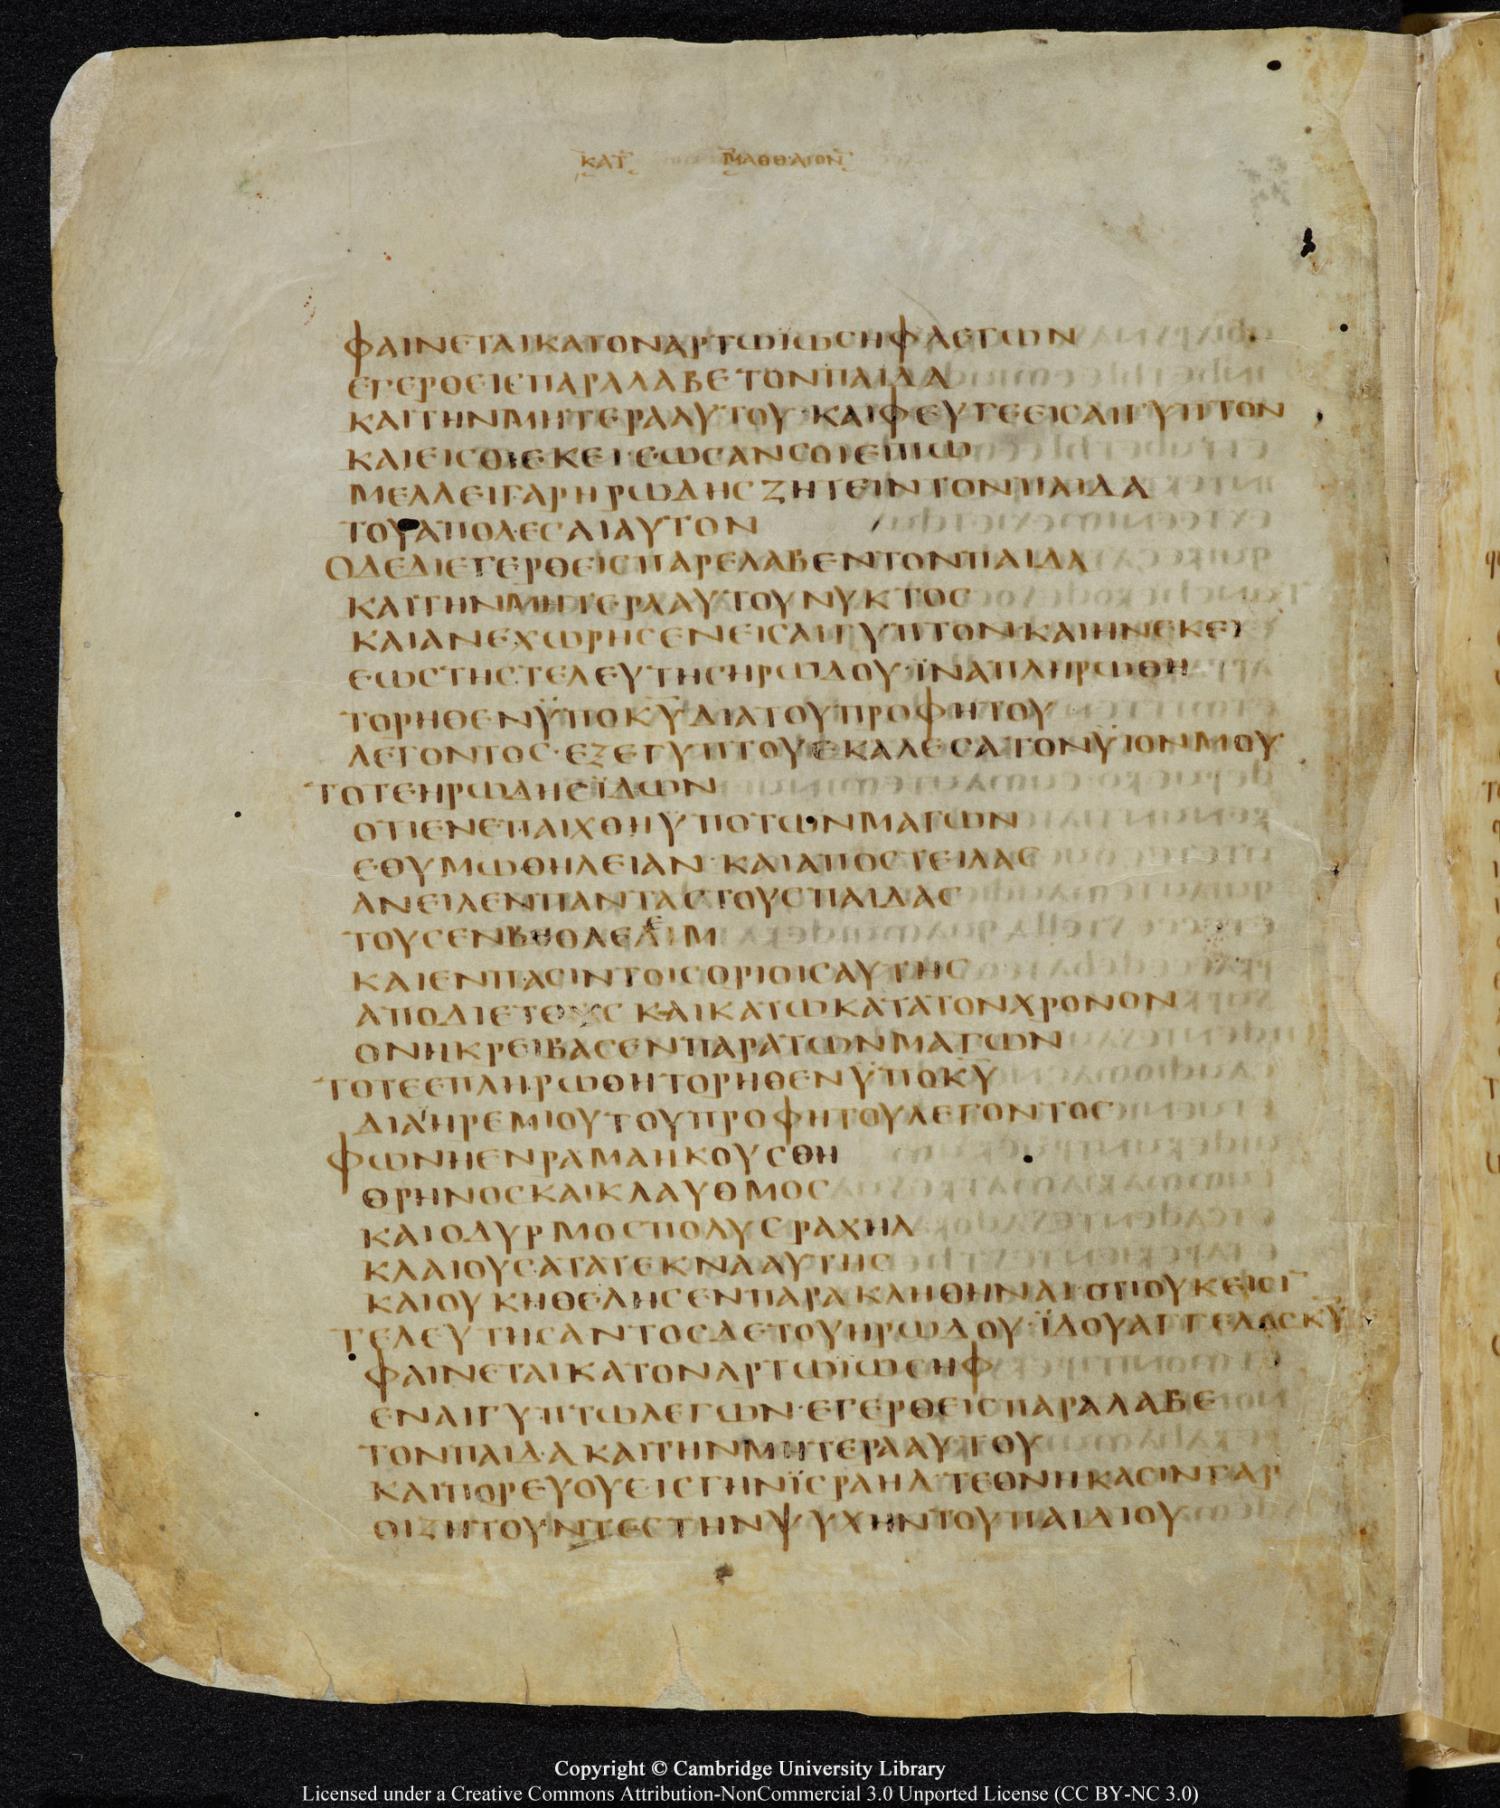 ΚΑΤ ΜΑΘΘΑΙΟΝ
ΦΑΙΝΕΤΑΙΚΑΤΟΝΑΡΤΩΪΩΣΗΦΛΕΓΩΝ
ΕΓΕΡΘΕΙΣΠΑΡΑΛΑΒΕΤΟΝΠΑΙΔΑ
ΚΑΙΤΗΝΜΗΤΕΡΑΑΥΤΟΥ·ΚΑΙΦΕΥΓΕΕΙΣΑΙΓΥΠΤΟΝ
ΚΑΙΕΙΣΘΙΕΚΕΙ·ΕΩΣΑΝΣΟΙΕΙΠΩ
ΜΕΛΛΕΙΓΑΡΗΡΩΔΗΣΖΗΤΕΙΝΤΟΝΠΑΙΔΑ
ΤΟΥΑΠΟΛΕΣΑΙΑΥΤΟΝ
ΟΔΕΔΙΕΓΕΡΘΕΙΣΠΑΡΕΛΑΒΕΝΤΟΝΠΑΙΔΑ
ΚΑΙΤΗΝΜΗΤΕΡΑΑΥΤΟΥΝΥΚΤΟΣ
ΚΑΙΑΝΕΧΩΡΗΣΕΝΕΙΣΑΙΓΥΠΤΟΝ·ΚΑΙΗΝΕΚΕΙ
ΕΩΣΤΗΣΤΕΛΕΥΤΗΣΗΡΩΔΟΥ·ΪΝΑΠΛΗΡΩΘΗ
ΤΟΡΗΘΕΝΫΠΟΚ̅Υ̅ΔΙΑΤΟΥΠΡΟΦΗΤΟΥ
ΛΕΓΟΝΤΟΣ·ΕΞΕΓΥΠΤΟΥΕΚΑΛΕΣΑΤΟΝΫΙΟΝΜΟΥ
ΤΟΤΕΗΡΩΔΗΣΪΔΩΝ
ΟΤΙΕΝΕΠΑΙΧΘΗΥΠΟΤΩΝΜΑΓΩΝ
ΕΘΥΜΩΘΗΛΕΙΑΝ·ΚΑΙΑΠΟΣΤΕΙΛΑΣ
ΑΝΕΙΛΕΝΠΑΝΤΑΣΤΟΥΣΠΑΙΔΑΣ
ΤΟΥΣΕΝΒΗΘΛΕΕΜ
ΚΑΙΕΝΠΑΣΙΝΤΟΙΣΟΡΙΟΙΣΑΥΤΗΣ
ΑΠΟΔΙΕΤΟΥΣ ΚΑΙΚΑΤΩΚΑΤΑΤΟΝΧΡΟΝΟΝ
ΟΝΗΚΡΕΙΒΑΣΕΝΠΑΡΑΤΩΝΜΑΓΩΝ
ΤΟΤΕΕΠΛΗΡΩΘΗΤΟΡΗΘΕΝΫΠΟΚ̅Υ̅
ΔΙΑΗΡΕΜΙΟΥΤΟΥΠΡΟΦΗΤΟΥΛΕΓΟΝΤΟΣ
ΦΩΝΗΕΝΡΑΜΑΗΚΟΥΣΘΗ
ΘΡΗΝΟΣΚΑΙΚΛΑΥΘΜΟΣ
ΚΑΙΟΔΥΡΜΟΣΠΟΛΥΣΡΑΧΗΛ
ΚΛΑΙΟΥΣΑΤΑΤΕΚΝΑΑΥΤΗΣ
ΚΑΙΟΥΚΗΘΕΛΗΣΕΝΠΑΡΑΚΛΗΘΗΝΑΙΟΤΙΟΥΚΕΙΣΙ̅
ΤΕΛΕΥΤΗΣΑΝΤΟΣΔΕΤΟΥΗΡΩΔΟΥ·ΪΔΟΥΑΓΓΕΛΟΣΚ̅Υ̅
ΦΑΙΝΕΤΑΙΚΑΤΟΝΑΡΤΩΪΩΣΗΦ
ΕΝΑΙΓΥΠΤΩΛΕΓΩΝ·ΕΓΕΡΘΕΙΣΠΑΡΑΛΑΒΕ
ΤΟΝΠΑΙΔΑΚΑΙΤΗΝΜΗΤΕΡΑΑΥΤΟΥ
ΚΑΙΠΟΡΕΥΟΥΕΙΣΓΗΝΪΣΡΑΗΛ·ΤΕΘΝΗΚΑΣΙΝΓΑΡ
ΟΙΖΗΤΟΥΝΤΕΣΤΗΝΨΥΧΗΝΤΟΥΠΑΙΔΙΟΥ
Copyright © Cambridge University Library
Licensed under a Creative Commons Attribution-NonCommercial 3.0 Unported License (CC BY-NC 3.0)